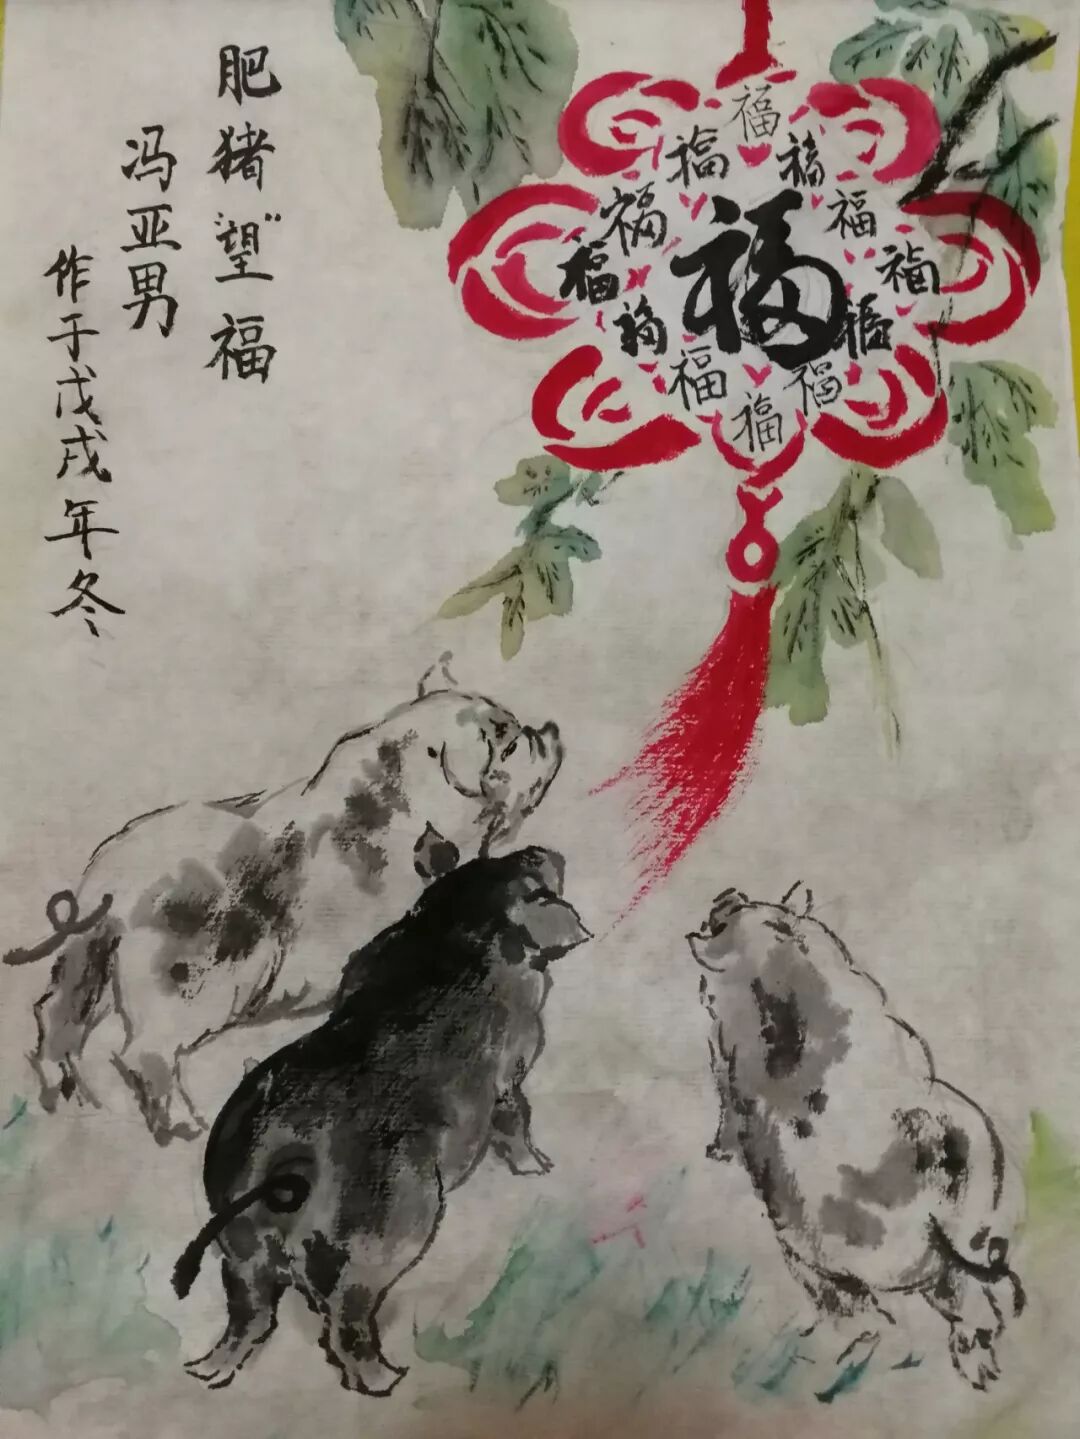 肥猪"望"福
冯亚男
作于戊戌年冬
福
福
福
福
福
福
福
福
福
福
福
福
福